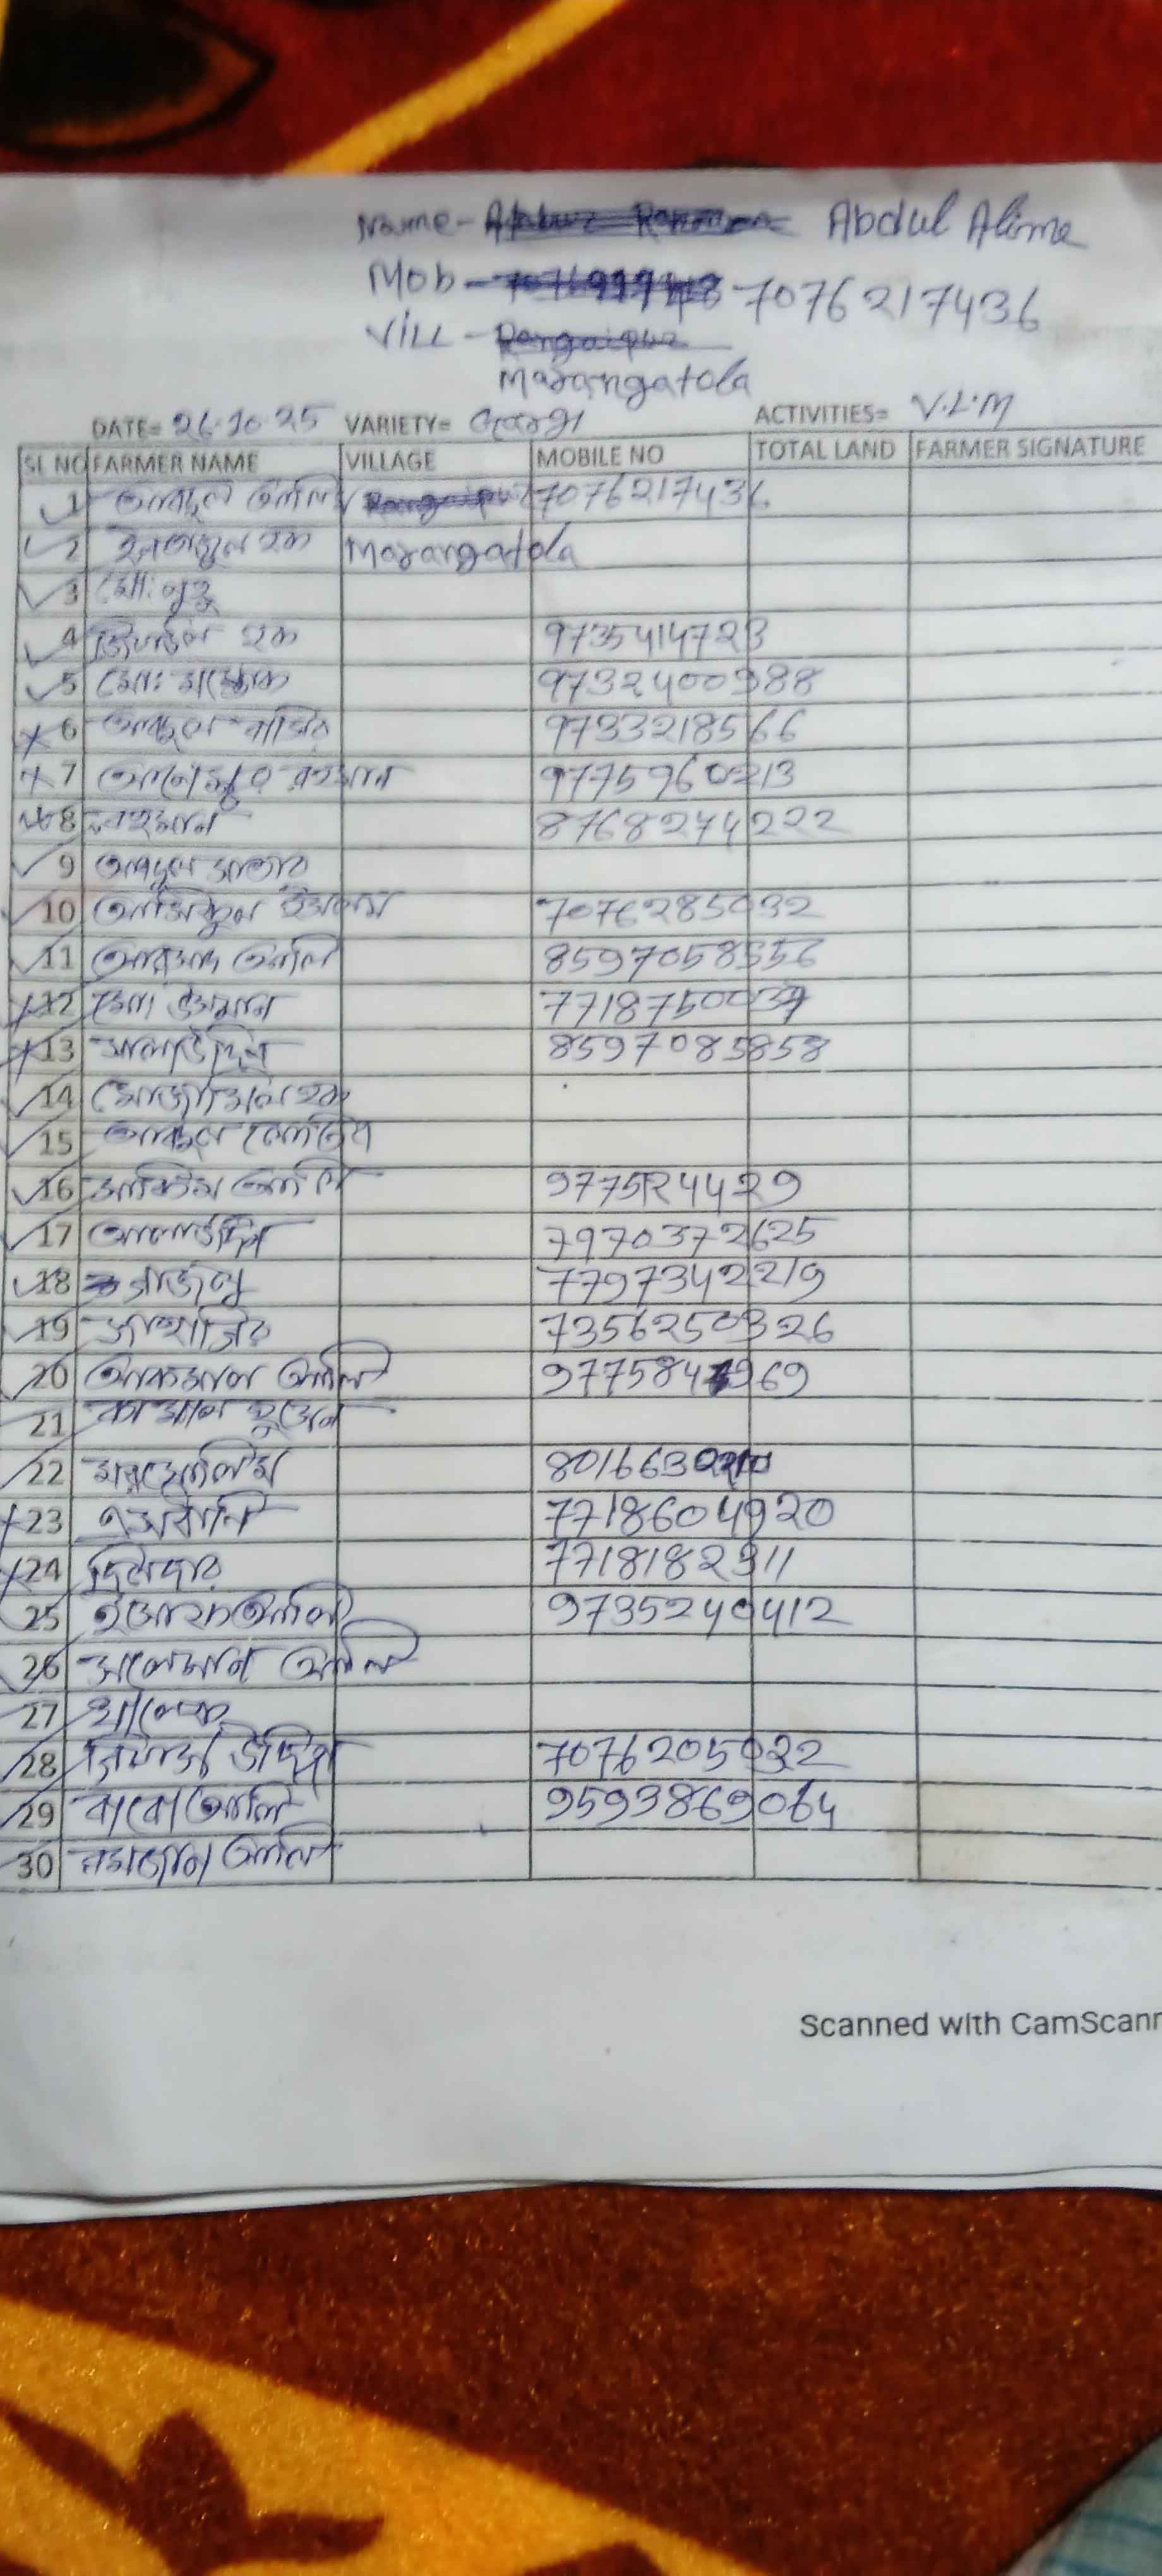 Name - Abdul Alime
Mob - 7076217436
Vill -
Marangatola
DATE= 26.10.25 VARIETY= ACTIVITIES= V.L.M
SL NO FARMER NAME VILLAGE MOBILE NO TOTAL LAND FARMER SIGNATURE
1 আব্দুল আলি 7076217436
2 ইনতাজুল হক Marangatola
3 মোঃ নুহু
4 জিয়াউল হক 9735414723
5 মোঃ 9732400988
6 আব্দুল 9733218566
7 রহমান 9775960213
8 রহমান 8768274222
9 আব্দুল সাত্তার
10 আসিকুল ইসলাম 7076285032
11 আরসাদ আলি 8597058556
12 মোঃ উসমান 77187500
13 সালাউদ্দিন 8597085858
14 মোজাম্মিল হক
15 আব্দুল
16 আলি 9775124429
17 আলাউদ্দিন 7970372625
18 রাজলু 7797342219
19 জাহাঙ্গির 7356250326
20 আকসাল আলি 977584 969
21 কামাল হুসেন
22 8016630
23 এসরানি 7718604920
24 দিলদার 7718182911
25 আলি 9735240412
26 সালেমান আলি
27 খালেক
28 নিয়াজ উদ্দিন 7076205032
29 বাবো আলি 9593869064
30 রমজান আলি
Scanned with CamScann